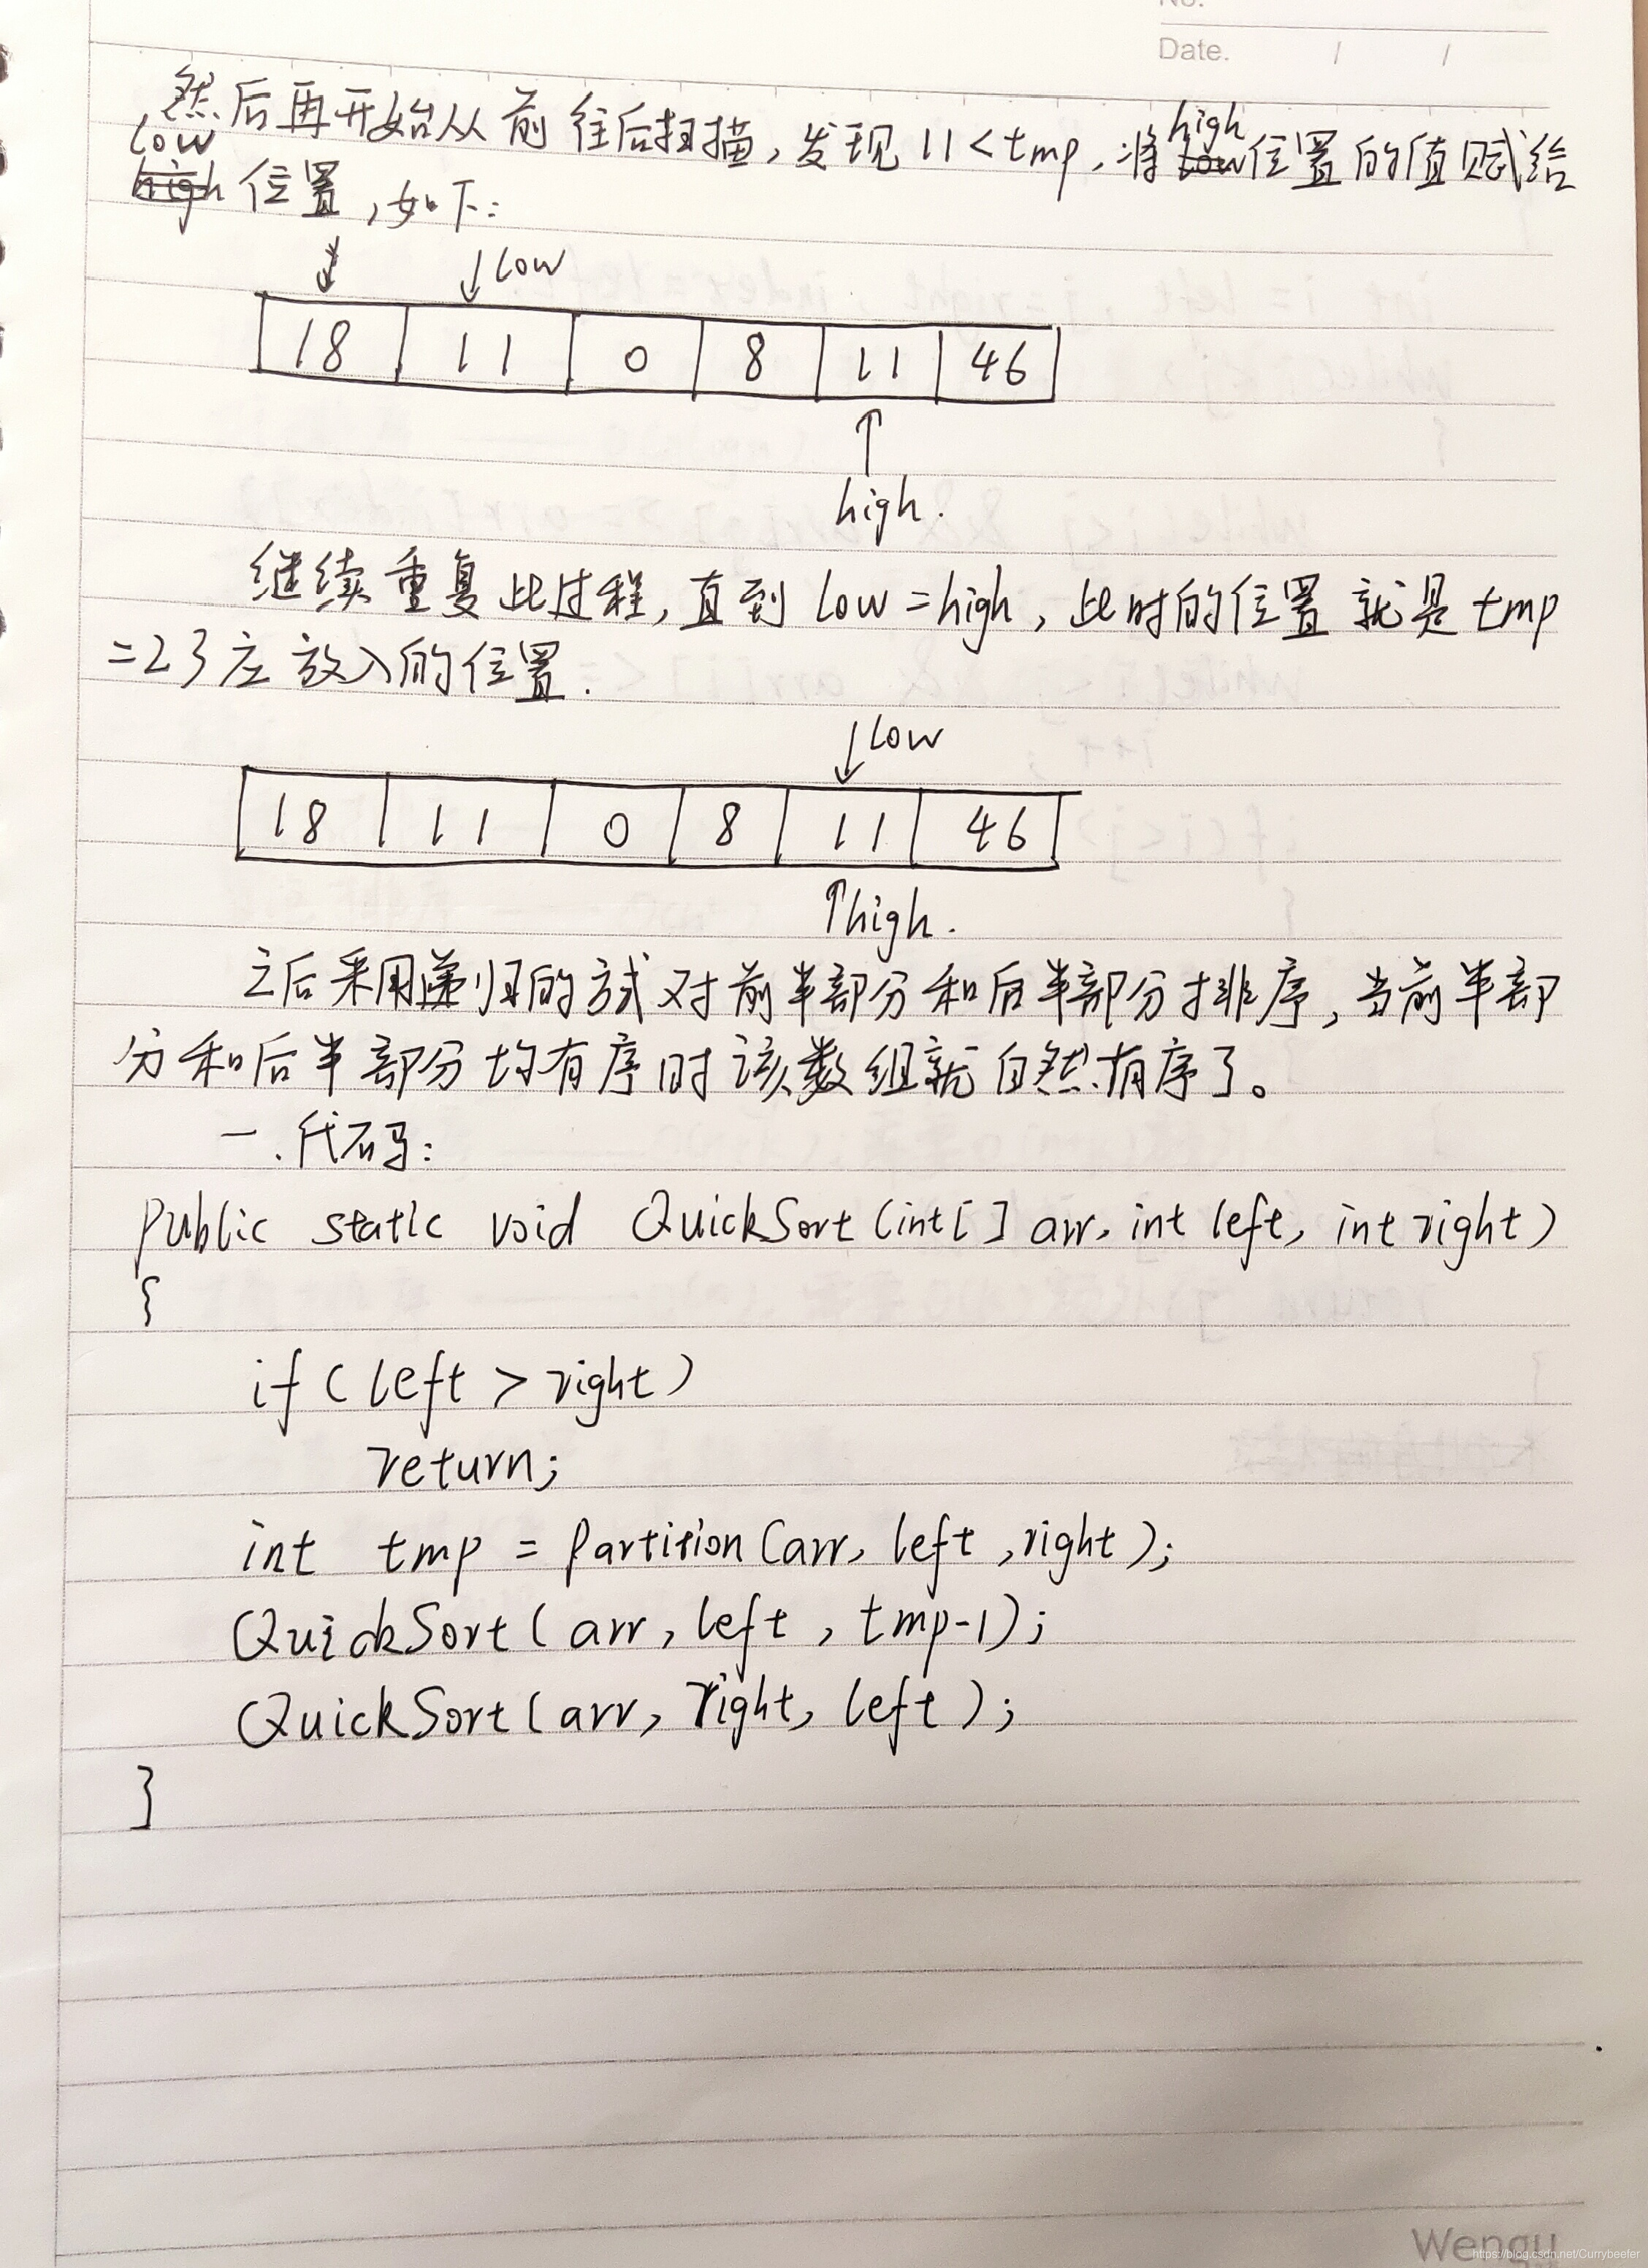 No.
Date. / /
然后再开始从前往后扫描,发现11<tmp,将high位置的值赋给
low位置,如下:
↓low
18 11 0 8 11 46
↑
high.
继续重复此过程,直到low=high,此时的位置就是tmp
=23应放入的位置.
↓low
18 11 0 8 11 46
↑high.
之后采用递归的方式对前半部分和后半部分排序,当前半部
分和后半部分均有序时该数组就自然有序了。
一.代码:
public static void QuickSort(int[] arr, int left, int right)
{
if(left > right)
return;
int tmp = partition(arr, left, right);
QuickSort(arr, left, tmp-1);
QuickSort(arr, right, left);
}
Wengu
https://blog.csdn.net/Currybeefer